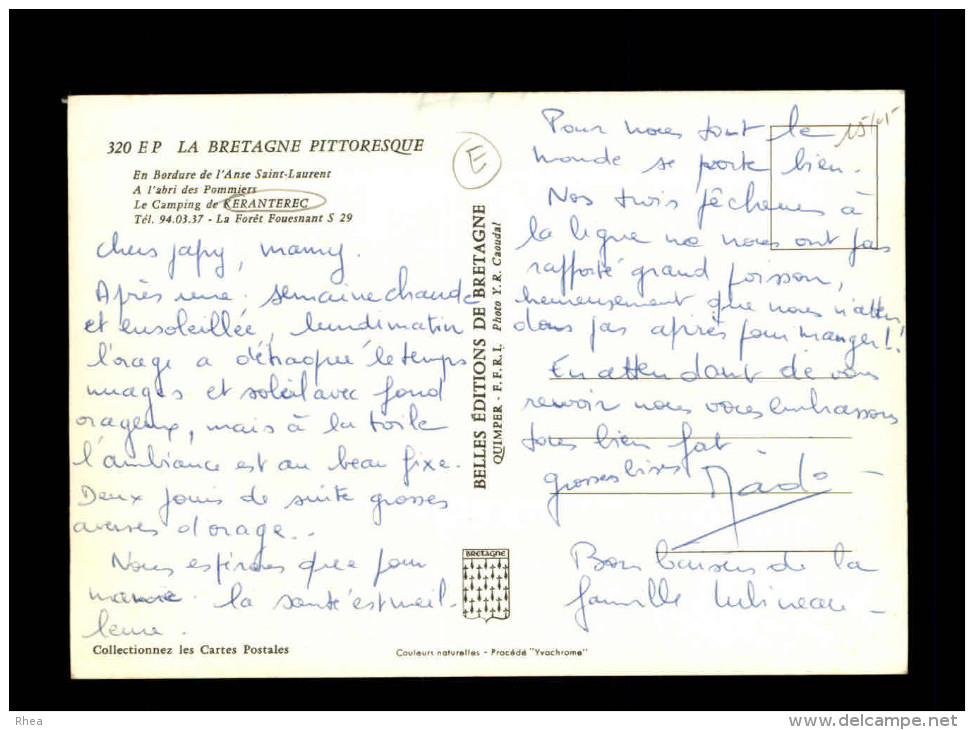 320 E P LA BRETAGNE PITTORESQUE
En Bordure de l'Anse Saint-Laurent
A l'abri des Pommiers
Le Camping de KERANTEREC
Tél. 94.03.37 - La Forêt Fouesnant S 29
E
chers papy, mamy.
Après une semaine chaude
et ensoleillée, lundi matin
l'orage a détraqué le temps
nuages et soleil avec fond
orageux, mais à la toile
l'ambiance est au beau fixe.
Deux jours de suite grosses
averses d'orage..
Nous espérons que pour
mamie la santé est meil-
leure.
Collectionnez les Cartes Postales
BELLES ÉDITIONS DE BRETAGNE
QUIMPER - E.F.R.I. Photo Y. R. Caoudal
BRETAGNE
Couleurs naturelles - Procédé "Yvachrome"
Pour nous tout le
monde se porte bien.
Nos trois pêcheurs à
la ligne ne nous ont pas
rapporté grand poisson,
heureusement que nous n'atten
dons pas après pour manger!!
En attendant de vous
revoir nous vous embrassons
tous bien fort
grosses bises Mado
Bons baisers de la
famille
Rhea
www.delcampe.net